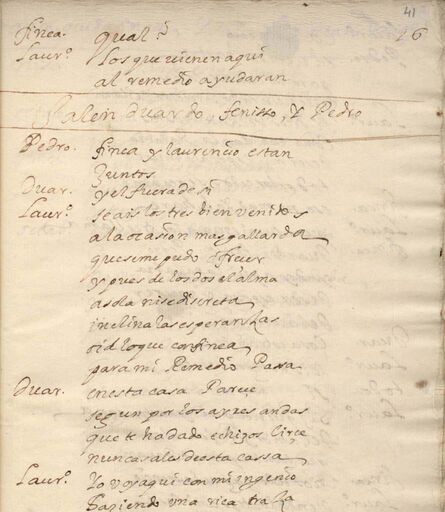 41
26
finea. qual?
Laur.º los que vienen aqui
al remedio ayudaran
Salen duardo fenisso, Y Pedro
Pedro. finea y laurencio estan
Juntos
Duar. y el fuera de si
Laur.º seais los tres bien venidos
a la ocasion mas gallarda
que se me pudo ofrecer
y pues de los dos el alma
a sola nise discreta
inclina las esperanzas
oid lo que con finea
para mi Remedio Passa
Duar. en esta casa Parece
segun por los ayres andas
que te ha dado echizos Circe
nunca sales de esta cassa
Laur.º Yo voy aqui con mi ingenio
haciendo una rica traza